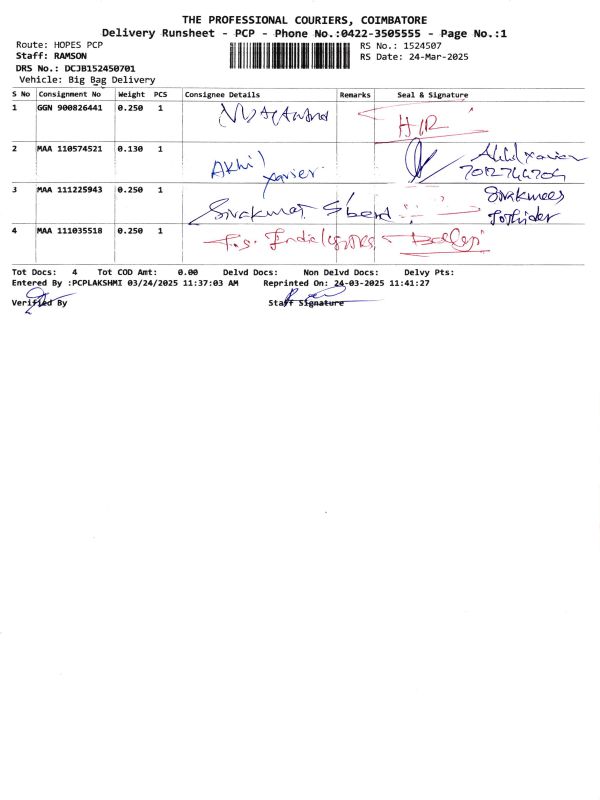 THE PROFESSIONAL COURIERS, COIMBATORE
Delivery Runsheet - PCP - Phone No.:0422-3505555 - Page No.:1
Route: HOPES PCP RS No.: 1524507
Staff: RAMSON RS Date: 24-Mar-2025
DRS No.: DCJB152450701
Vehicle: Big Bag Delivery
S No Consignment No Weight PCS Consignee Details Remarks Seal & Signature
1 GGN 900826441 0.250 1
2 MAA 110574521 0.130 1 Akhil Xavier Akhil Xavier
3 MAA 111225943 0.250 1 Sivakumar
4 MAA 111035518 0.250 1
Tot Docs: 4 Tot COD Amt: 0.00 Delvd Docs: Non Delvd Docs: Delvy Pts:
Entered By :PCPLAKSHMI 03/24/2025 11:37:03 AM Reprinted On: 24-03-2025 11:41:27
Verified By Staff Signature